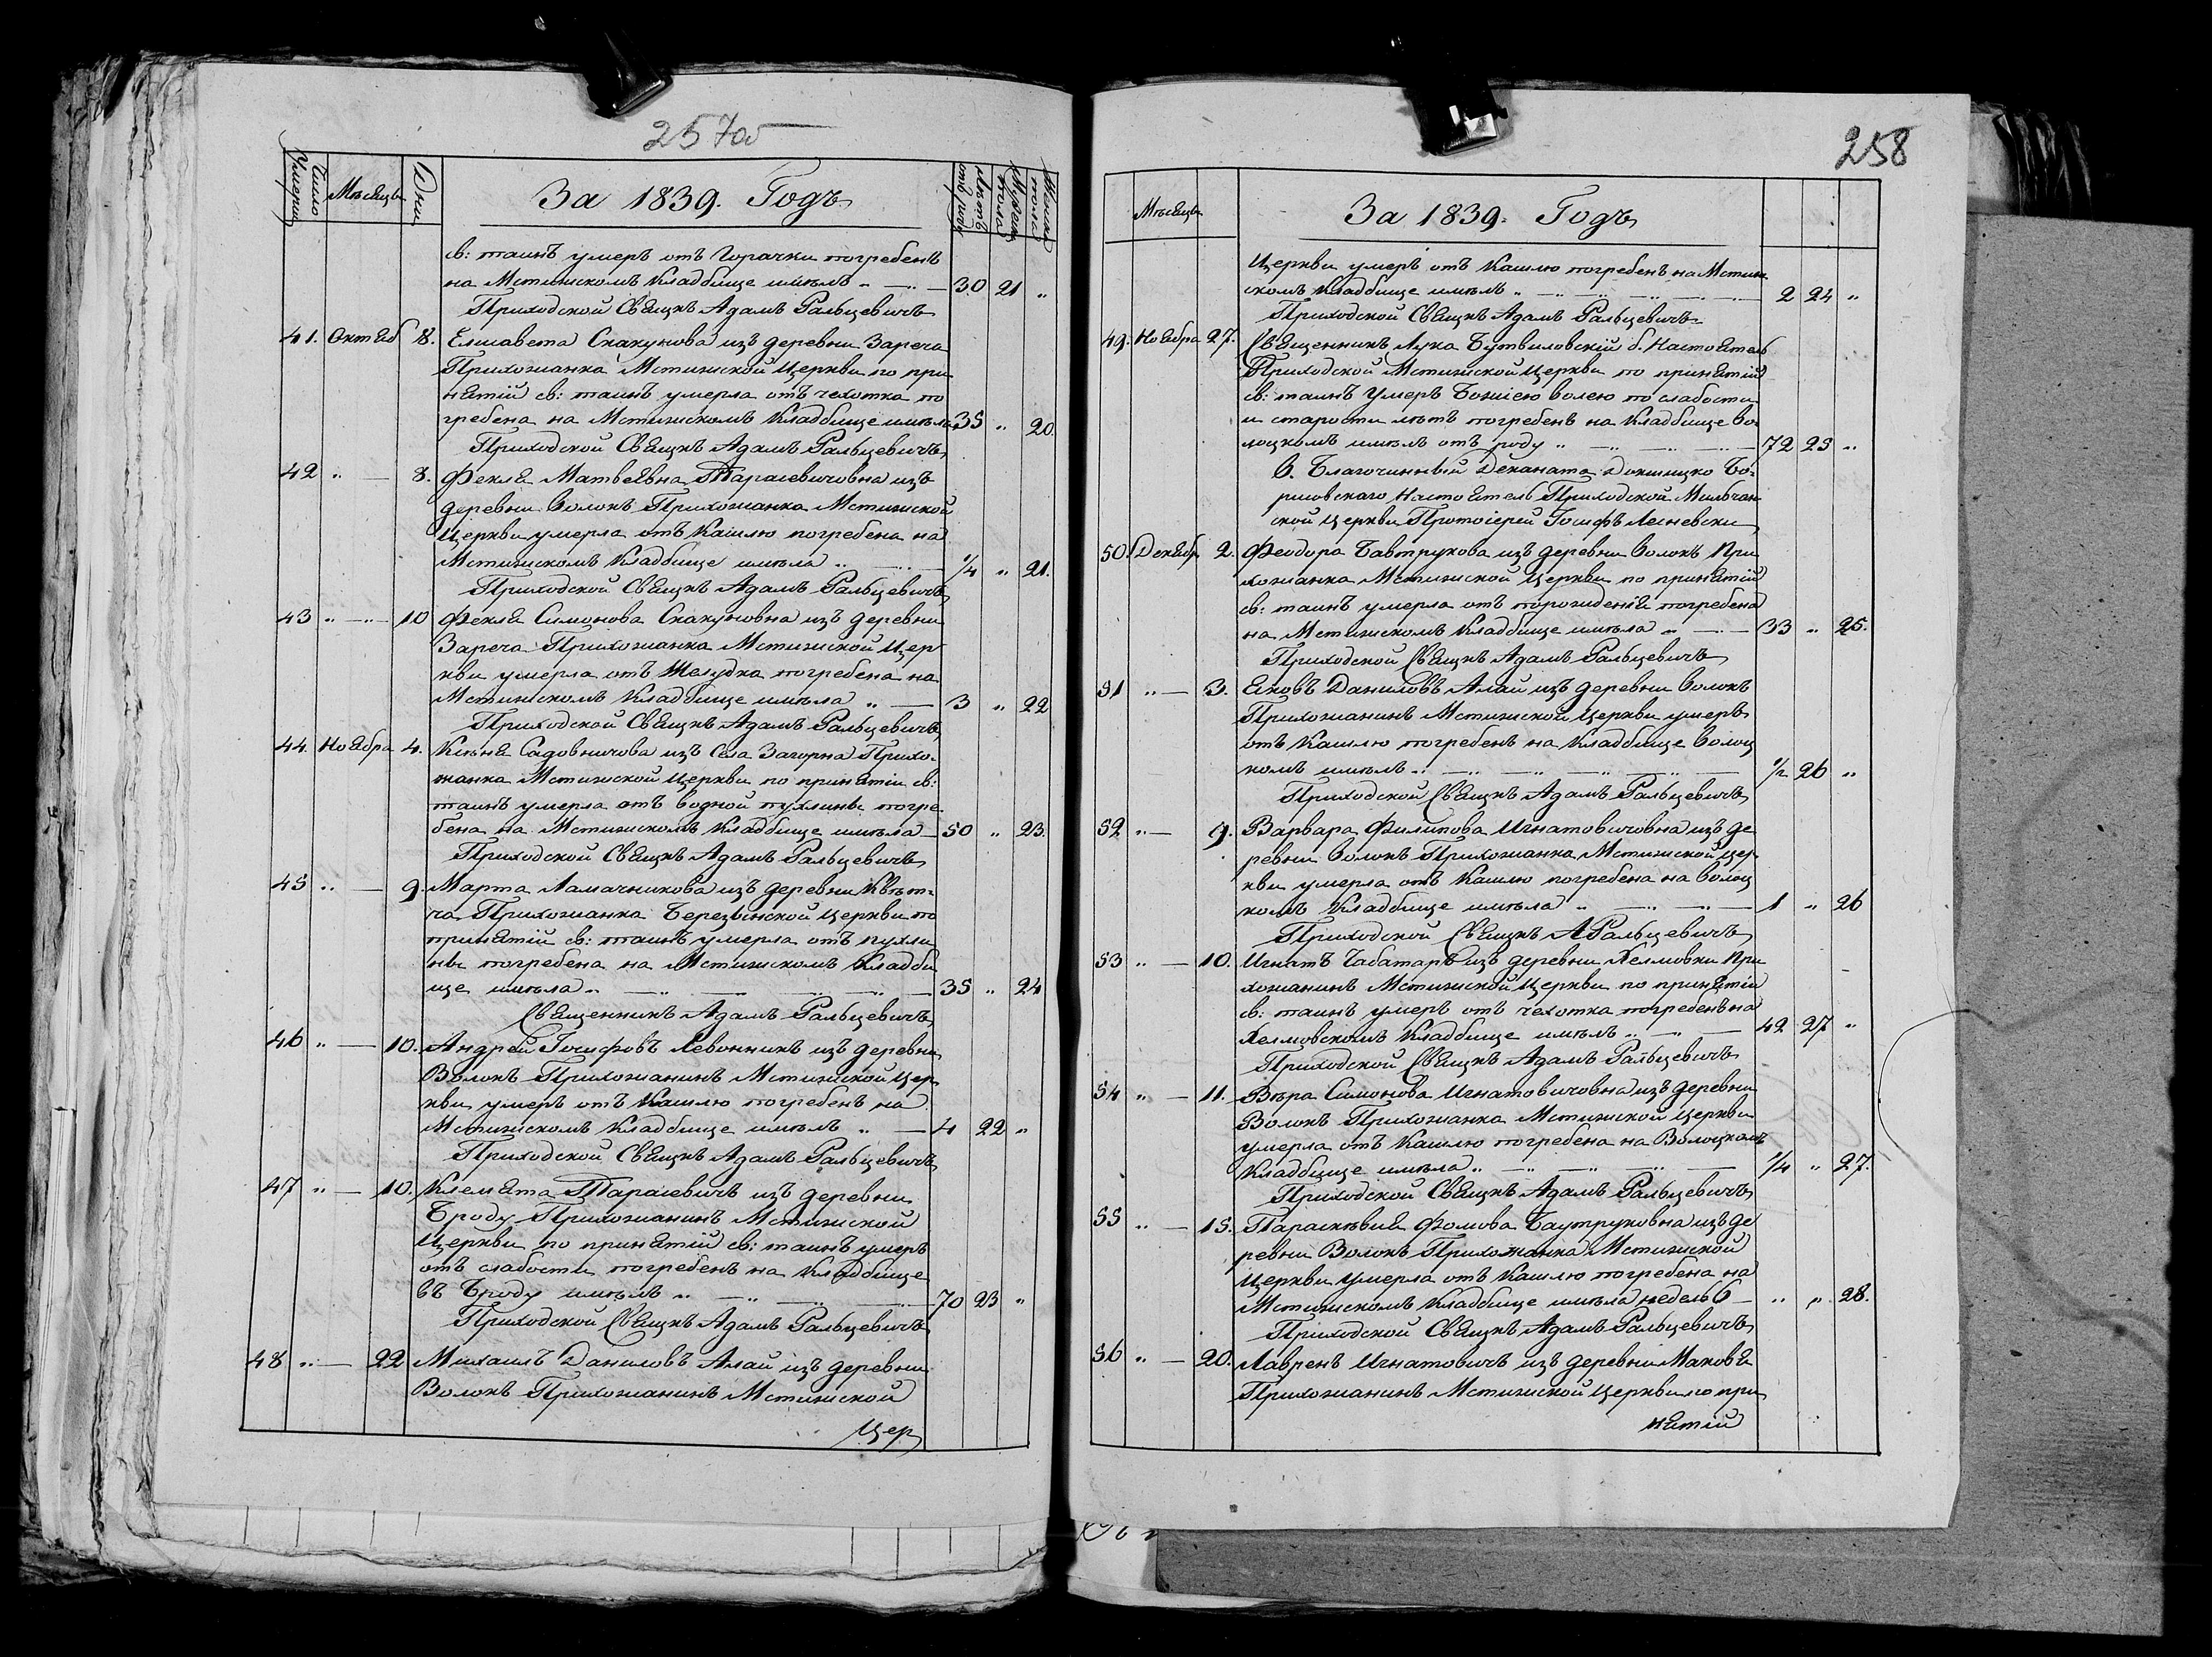 257об
Число
Умерш
Мѣсяцы
Дни
За 1839. Годъ
лѣтъ
отъ роду
Мужеска
пола
Женска
пола
св: таинъ умеръ отъ горачки погребенъ
на Мстижскомъ Кладбище имѣлъ 30 21 „
Приходской Свящнъ Адамъ Ральцевичъ
41. Октяб 8. Елисавета Скакунова изъ деревни Зареча
Прихожанка Мстижской Церкви по при
нятій св: таинъ умерла отъ чехотка по
гребена на Мстижскомъ Кладбище имѣла 35 „ 20.
Приходской Свящнъ Адамъ Ральцевичъ
42 „ — 8. Фекля Матвеявна Тарасевичовна изъ
деревни Волокъ Прихожанка Мстижской
Церкви умерла отъ Кашлю погребена на
Мстижскомъ Кладбище имѣла „ 1/4 „ 21.
Приходской Свящнъ Адамъ Ральцевичъ
43 „ — „ — 10 Фекля Симонова Скакуновна изъ деревни
Зареча Прихожанка Мстижской Цер
кви умерла отъ Желудка погребена на
Мстижскомъ Кладбище имѣла „ — 3 „ 22
Приходской Свящнъ Адамъ Ральцевичъ
44. Ноябра 4. Садовничова изъ Села Загорна Прихо-
жанка Мстижской Церкви по принятіи св:
таинъ умерла отъ водной пухлины погре-
бена на Мстижскомъ Кладбище имѣла — 50 „ 23.
Приходской Свящнъ Адамъ Ральцевичъ
45 „ — 9. Марта Ламачникова изъ деревни Квѣт-
ча Прихожанка Березвинской Церкви по
принятій св: таинъ умерла отъ пухли
ны погребена на Мстижскомъ Кладби
ще имѣла „ — 35 „ 24
Священникъ Адамъ Ральцевичъ
46 „ — 10. Андрей Іосифовъ Левонникъ изъ деревни
Волокъ Прихожанинъ Мстижской Цер
кви умеръ отъ Кашлю погребенъ на
Мстижскомъ Кладбище имѣлъ „ — 4 22 „
Приходской Свящнъ Адамъ Ральцевичъ
47 „ — 10. Клемята Тарасевичъ изъ деревни
Броду Прихожанинъ Мстижской
Церкви по принятій св: таинъ умеръ
отъ слабости погребенъ на Кладбище
въ Броду имѣлъ „ — 70 23 „
Приходской Свящнъ Адамъ Ральцевичъ
48 „ — 22 Михаилъ Даниловъ Алай изъ деревни
Волокъ Прихожанинъ Мстижской
Цер
258
Мѣсяцы
За 1839. Годъ
Церкви умеръ отъ Кашлю погребенъ на Мстиж
скомъ Кладбище имѣлъ „ — 2 24 „
Приходской Свящнъ Адамъ Ральцевичъ
49. Ноябра 27. Священникъ Лука Бутвиловскій б. Настоятель
Приходской Мстижской Церкви по принятій
св: таинъ умеръ Божіею волею по слабости
и старости лѣтъ погребенъ на Кладбище Во-
лоцкомъ имѣлъ отъ роду „ — 72 25 „
б. Благочинный Деканата Докшицко Бо-
рисовскаго Настоятель Приходской Мильчан
ской Церкви Протоіерей Іосифъ Лисневски
50. Декябр 2. Феодора Бавтрукова изъ деревни Волокъ При
хожанка Мстижской Церкви по принятій
св: таинъ умерла отъ порожденія погребена
на Мстижскомъ Кладбище имѣла „ — 33 „ 25.
Приходской Свящнъ Адамъ Ральцевичъ
51 „ — 3. Яковъ Даниловъ Алай изъ деревни Волокъ
Прихожанинъ Мстижской Церкви умеръ
отъ Кашлю погребенъ на Кладбище Волоц
комъ имѣлъ „ — 1/2 26 „
Приходской Свящнъ Адамъ Ральцевичъ
52 „ — 9. Варвара Филипова Игнатовичовна изъ де
ревни Волокъ Прихожанка Мстижской Цер
кви умерла отъ Кашлю погребена на Волоц
комъ Кладбище имѣла „ — 1 „ 26
Приходской Свящнъ А Ральцевичъ
53 „ — 10. Игнатъ Чабатаръ изъ деревни Хелмовки При
хожанинъ Мстижской Церкви по принятіи
св: таинъ умеръ отъ чехотка погребенъ на
Хелмовскомъ Кладбище имѣлъ „ — 42 27 „
Приходской Свящнъ Адамъ Ральцевичъ
54 „ — 11. Вѣра Симонова Игнатовичовна изъ деревни
Волокъ Прихожанка Мстижской Церкви
умерла отъ Кашлю погребена на Волоцкомъ
Кладбище имѣла „ — 1/4 „ 27.
Приходской Свящнъ Адамъ Ральцевичъ
55 „ — 15. Параскѣвия Фомова Баутруковна изъ де
ревни Волокъ Прихожанка Мстижской
Церкви умерла отъ Кашлю погребена на
Мстижскомъ Кладбище имѣла недель 6 — „ „ 28.
Приходской Свящнъ Адамъ Ральцевичъ
56 „ — 20. Лавренъ Игнатовичъ изъ деревни Маковя
Прихожанинъ Мстижской Церкви по при
нятій